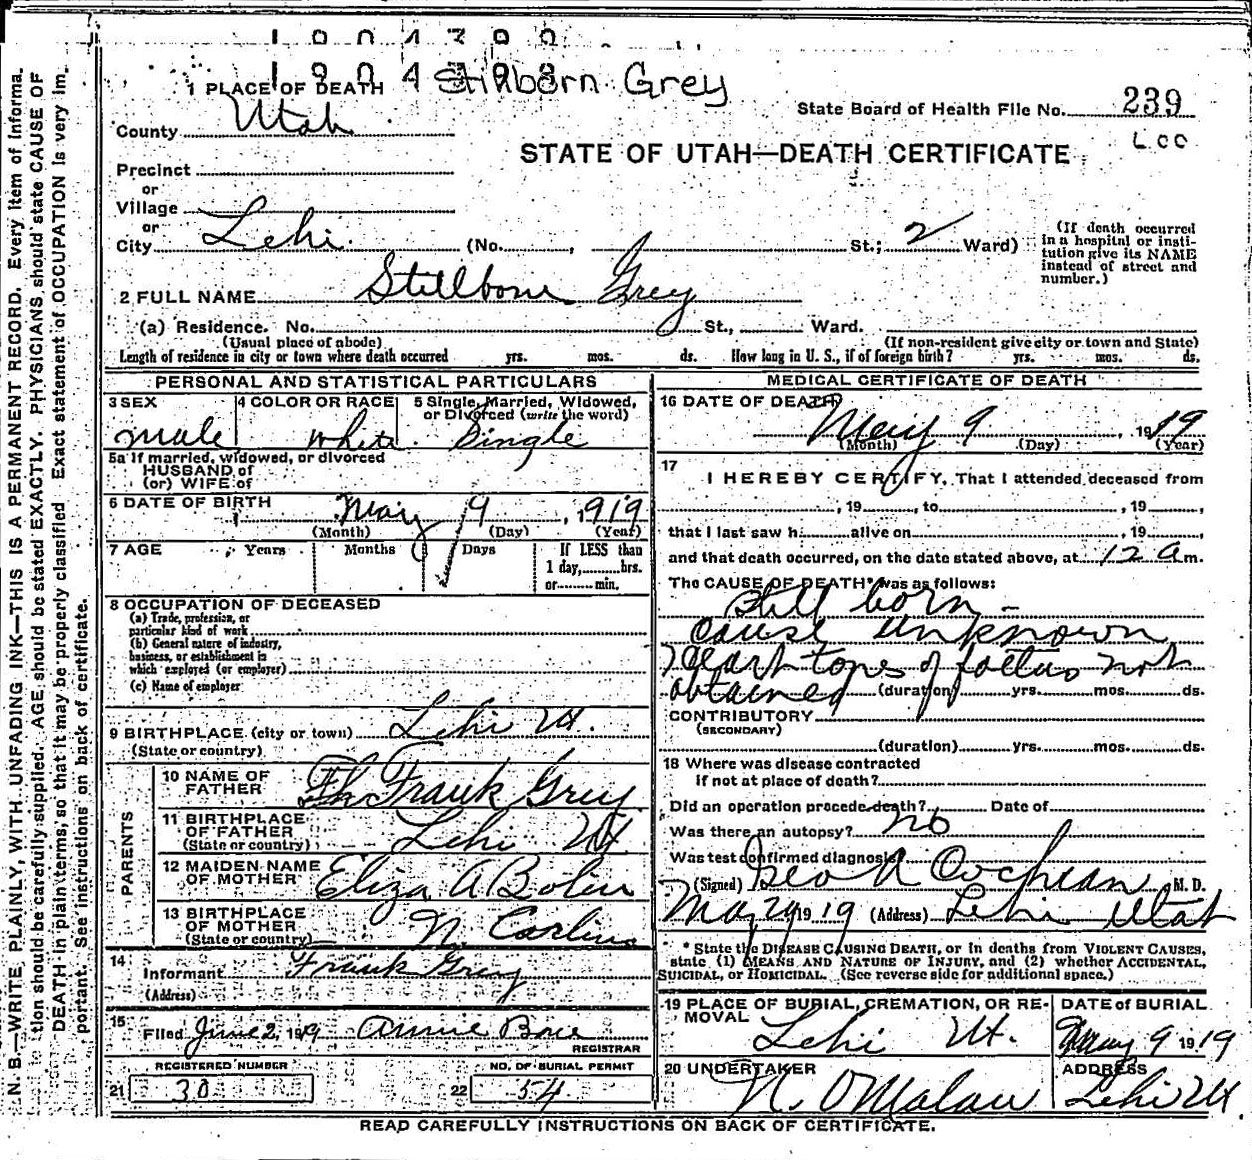 1904799
Stillborn Grey
1 PLACE OF DEATH
State Board of Health File No. 239
County Utah
STATE OF UTAH—DEATH CERTIFICATE
Precinct
or
Village
or
City Lehi (No. , St.; 2 Ward)
(If death occurred
in a hospital or insti-
tution give its NAME
instead of street and
number.)
2 FULL NAME Stillborn Grey
(a) Residence. No. St., Ward.
(Usual place of abode) (If non-resident give city or town and State)
Length of residence in city or town where death occurred yrs. mos. ds. How long in U. S., if of foreign birth? yrs. mos. ds.
PERSONAL AND STATISTICAL PARTICULARS
3 SEX male
4 COLOR OR RACE White
5 Single, Married, Widowed,
or Divorced (write the word)
Single
5a If married, widowed, or divorced
HUSBAND of
(or) WIFE of
6 DATE OF BIRTH May 9, 1919
(Month) (Day) (Year)
7 AGE Years Months Days If LESS than
1 day, hrs.
or min.
8 OCCUPATION OF DECEASED
(a) Trade, profession, or
particular kind of work
(b) General nature of industry,
business, or establishment in
which employed (or employer)
(c) Name of employer
9 BIRTHPLACE (city or town) Lehi Ut.
(State or country)
PARENTS
10 NAME OF
FATHER Frank Grey
11 BIRTHPLACE
OF FATHER Lehi Ut
(State or country)
12 MAIDEN NAME
OF MOTHER Eliza A
13 BIRTHPLACE
OF MOTHER N. Carlina
(State or country)
14
Informant Frank Grey
(Address)
15
Filed June 2, 1919 Annie
REGISTRAR
REGISTERED NUMBER NO. OF BURIAL PERMIT
21 30 22 54
MEDICAL CERTIFICATE OF DEATH
16 DATE OF DEATH
May 9, 1919
(Month) (Day) (Year)
17
I HEREBY CERTIFY, That I attended deceased from
, 19 , to , 19 ,
that I last saw h alive on , 19 ,
and that death occurred, on the date stated above, at 12 a m.
The CAUSE OF DEATH* was as follows:
Still born -
Cause unknown
Heart tones of foetus not
obtained (duration) yrs. mos. ds.
CONTRIBUTORY
(SECONDARY)
(duration) yrs. mos. ds.
18 Where was disease contracted
if not at place of death?
Did an operation precede death? Date of
Was there an autopsy? no
Was test confirmed diagnosis
(Signed) Geo A Cochran M. D.
May 1919 (Address) Lehi Utah
* State the DISEASE CAUSING DEATH, or in deaths from VIOLENT CAUSES,
state (1) MEANS AND NATURE OF INJURY, and (2) whether ACCIDENTAL,
SUICIDAL, or HOMICIDAL. (See reverse side for additional space.)
19 PLACE OF BURIAL, CREMATION, OR RE-
MOVAL
Lehi Ut.
DATE of BURIAL
May 9 1919
20 UNDERTAKER
N. O Malan
ADDRESS
Lehi Ut
READ CAREFULLY INSTRUCTIONS ON BACK OF CERTIFICATE.
N. B.—WRITE PLAINLY, WITH UNFADING INK—THIS IS A PERMANENT RECORD. Every item of informa-
tion should be carefully supplied. AGE should be stated EXACTLY. PHYSICIANS should state CAUSE OF
DEATH in plain terms, so that it may be properly classified. Exact statement of OCCUPATION is very im-
portant. See instructions on back of certificate.